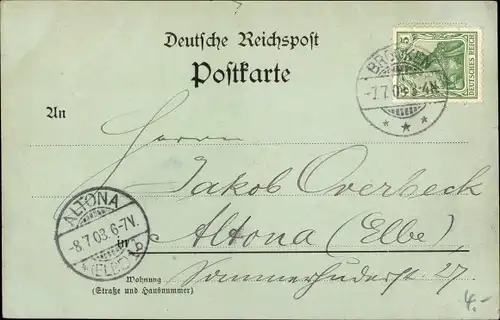 Deutsche Reichspost
Postkarte
5
DEUTSCHES REICH
BROCKEN
-7.7.03.3-4N.
* * *
An
Herrn
Jakob Overbeck
ALTONA
-8.7.03.6-7N.
*(ELBE)
in Altona (Elbe)
Wohnung
(Straße und Hausnummer)
Sommerhuderst. 27
4.-